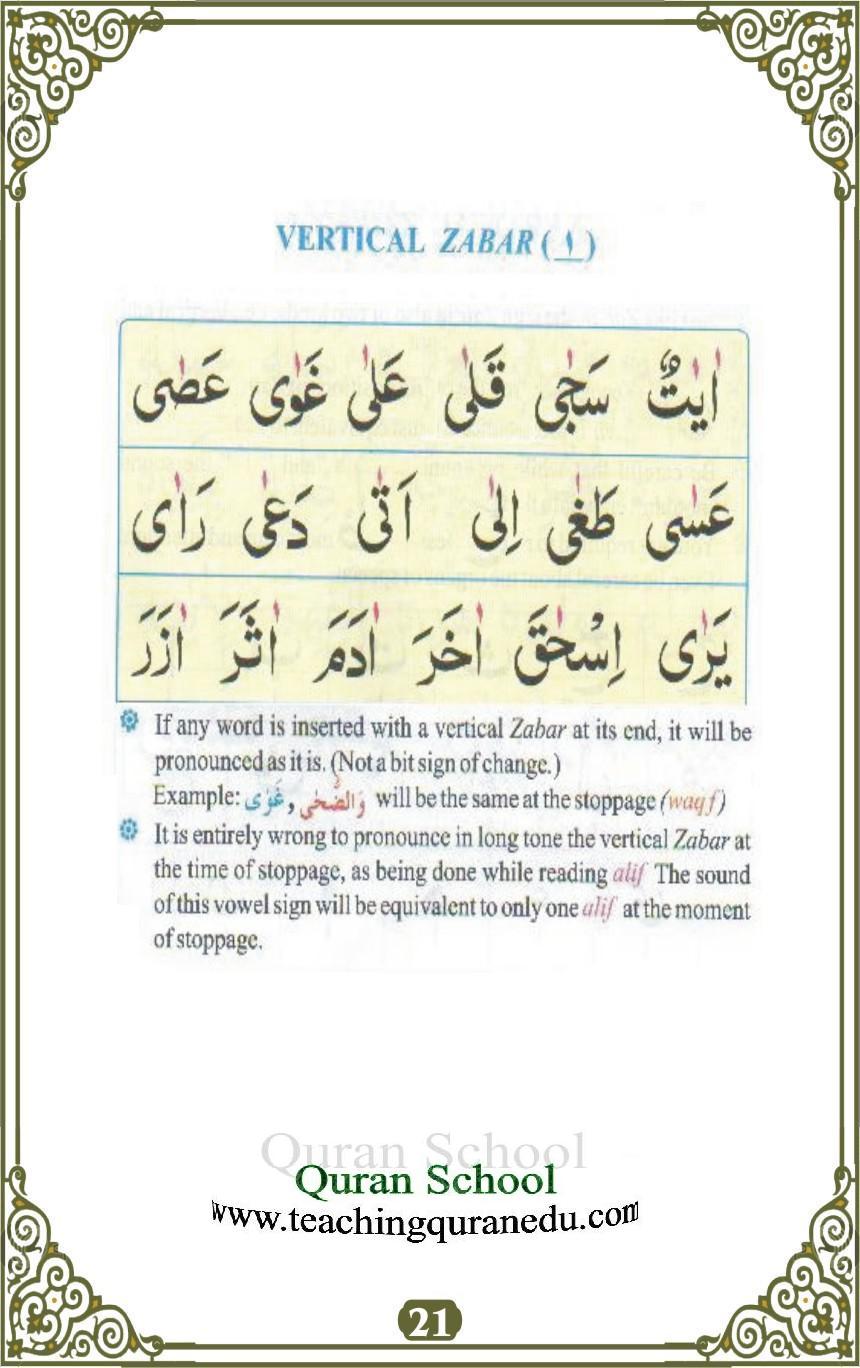 VERTICAL ZABAR (ـٰ)
اٰيٰتٌ سَجٰى قَلٰى عَلٰى غَوٰى عَصٰى
عَسٰى طَغٰى اِلٰى اَتٰى دَعٰى رَاٰى
يَرٰى اِسْحٰقَ اٰخَرَ اٰدَمَ اٰثَرَ اٰزَرَ
If any word is inserted with a vertical Zabar at its end, it will be
pronounced as it is. (Not a bit sign of change.)
Example: وَالضُّحٰى , غَوٰى will be the same at the stoppage (waqf)
It is entirely wrong to pronounce in long tone the vertical Zabar at
the time of stoppage, as being done while reading alif The sound
of this vowel sign will be equivalent to only one alif at the moment
of stoppage.
Quran School
Quran School
www.teachingquranedu.com
21